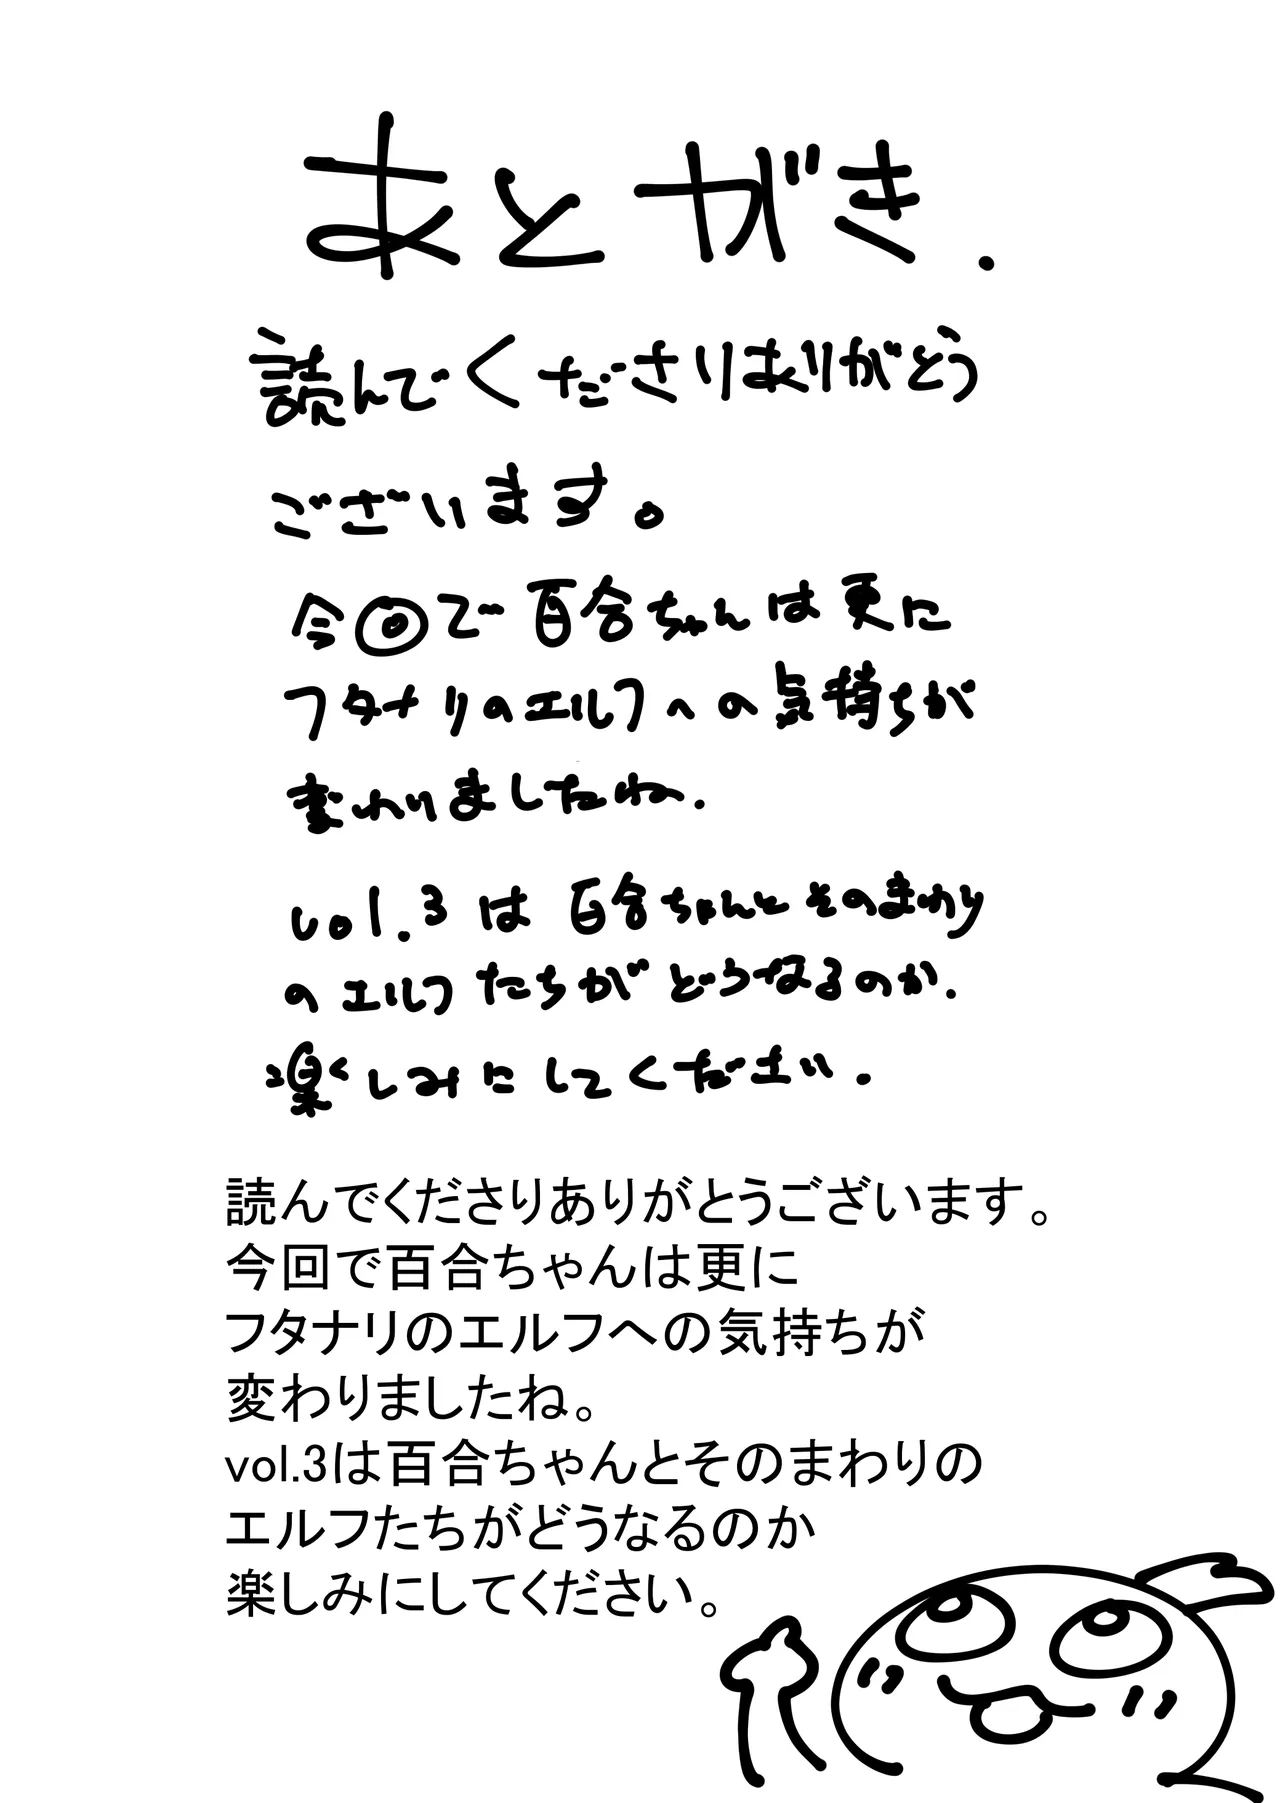 あとがき.
読んでくださりありがとう
ございます。
今回で百合ちゃんは更に
フタナリのエルフへの気持ちが
変わりましたね.
vol.3は百合ちゃんとそのまわり
のエルフたちがどうなるのか.
楽しみにしてください.
読んでくださりありがとうございます。
今回で百合ちゃんは更に
フタナリのエルフへの気持ちが
変わりましたね。
vol.3は百合ちゃんとそのまわりの
エルフたちがどうなるのか
楽しみにしてください。